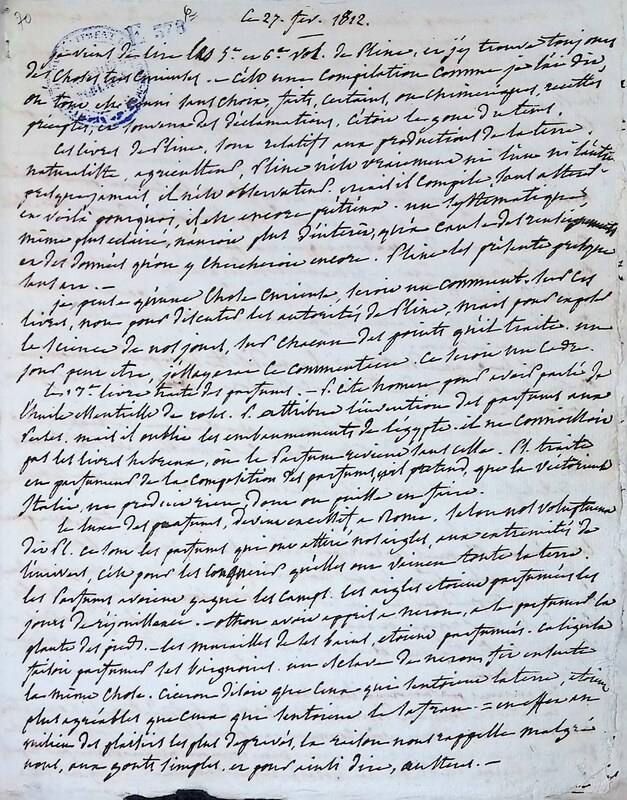 70
578
ce 27. fev. 1812.
je viens de lire les 5e et 6e vol. de Pline, et j'y trouve toujours
des choses tres curieuses. - C'est une compilation comme je l'ai dit,
ou tout est réuni sans choix, faits, certains, ou chimeriques, recettes
préceptes, et souvent des déclamations, c'étoit le gout du tems.
Ces livres de Pline, sont relatifs aux productions de la terre.
naturaliste, agriculteur, Pline n'est vraiment ni l'un ni l'autre
presque jamais, il n'est observateur, mais il compile, sans
en voilà pourquoi, il est encore un systematique
même plus eclairé, n'auroit plus d'interet, qu'à cause des renseignements
et des données qu'on y chercheroit encore. Pline les présente presque
sans art. -
je pense qu'une chose curieuse, seroit un comment. sur ces
livres, non pour discuter les autorités de Pline, mais pour
la science de nos jours, sur chacun des points qu'il traite. un
jour peut etre, j'essayerai ce commentaire. Ce seroit un cadre
le livre traite des parfums. - P. cite homere pour avoir parlé de
l'huile essentielle de roses. P. attribue l'invention des parfums aux
Perses. mais il oublie les embaumements de l'egypte. il ne connoissoit
pas les livres hebreux, où le parfum revient sans cesse. Pl. traite
en parfumeur de la composition des parfums, et pretend, que la victorieuse
Italie, ne produit rien, dont on puisse en faire.
le luxe des parfums, devint excessif a Rome. selon nos voluptueux
dit Pl. ce sont les parfums qui ont attiré nos aigles, aux extremités de
l'univers, c'est pour les conquerir qu'elles ont vaincu toute la terre
les parfums avoient gagné les camps. les aigles etoient parfumées les
jours de rejouissance. - othon avoit appris a neron, a se parfumer la
plante des pieds. - les murailles de ses bains, etoient parfumés. Caligula
faisoit parfumer ses baignoires. un esclave de neron, fit ensuite
la même chose. Ciceron disoit que ceux qui sentoient la terre, etoient
plus agréables que ceux qui sentoient le safran - en effet au
milieu des plaisirs les plus depravés, la raison nous rappelle malgré
nous, aux gouts simples. et pour ainsi dire, austeres. -